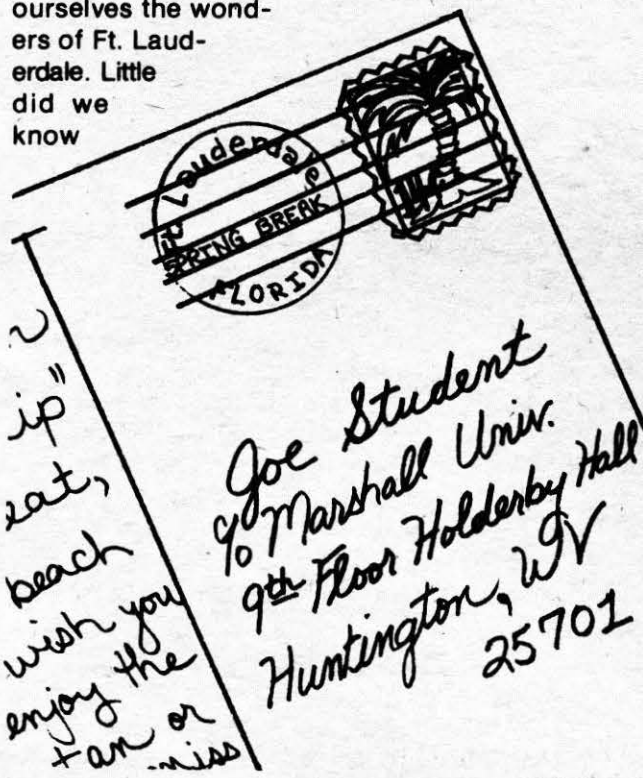 ourselves the wond-
ers of Ft. Laud-
erdale. Little
did we
know
Ft. Lauderdale
SPRING BREAK
FLORIDA
ip"
eat,
beach
wish you
enjoy the
tan or
miss
Joe Student
c/o Marshall Univ.
9th Floor Holderby Hall
Huntington, WV
25701